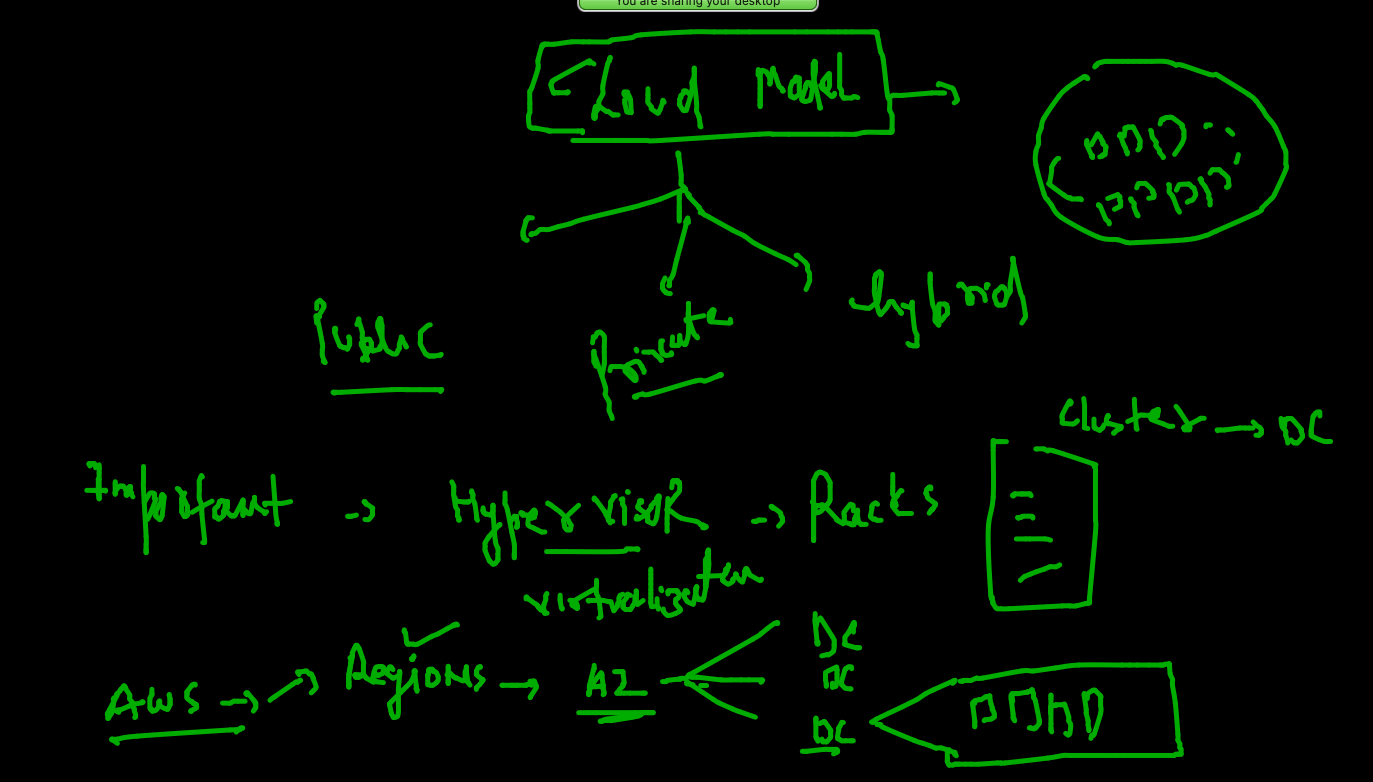 You are sharing your desktop
Cloud Model
Public
Private
hybrid
Cluster → DC
Important → Hypervisor → Racks
virtualization
AWS → Regions → AZ
DC
DC
DC